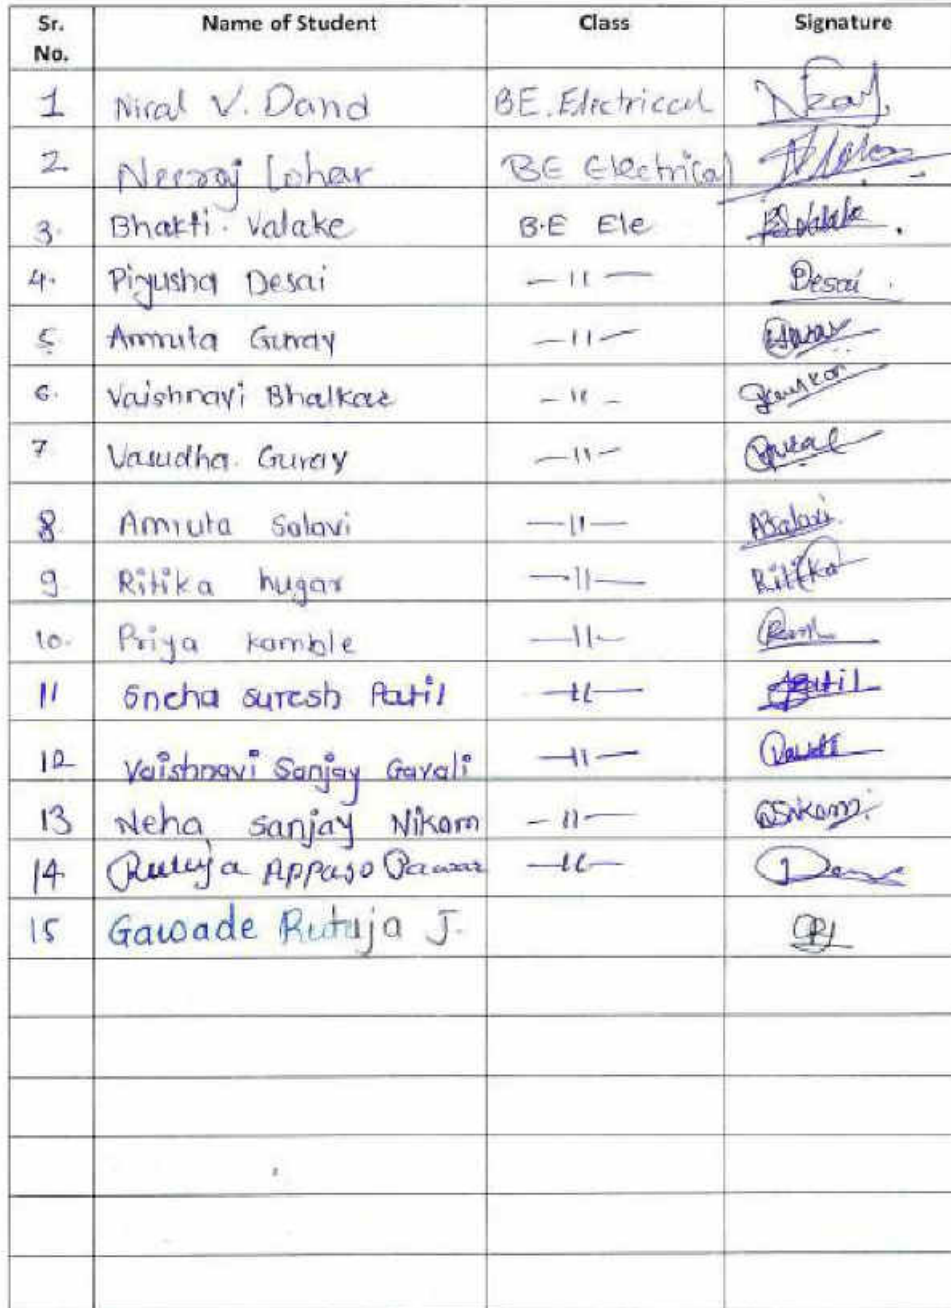 Sr. No. Name of Student Class Signature
1 Niral V. Dand BE. Electrical
2 Neeraj Lohar BE Electrical
3. Bhakti. Valake B.E Ele
4. Piyusha Desai —11— Desai
5 Amruta Gurav —11—
6. Vaishnavi Bhalkar —11—
7 Vasudha. Gurav —11—
8. Amruta Salavi —11— ASalavi.
9. Ritika hugar —11— Ritika
10. Priya Kamble —11—
11 Sneha Suresh Patil —11— Patil
12 Vaishnavi Sanjay Gavali —11—
13 Neha Sanjay Nikam —11— Nikam
14. Rutuja Appaso Pawar —11—
15 Gawade Rutuja J.